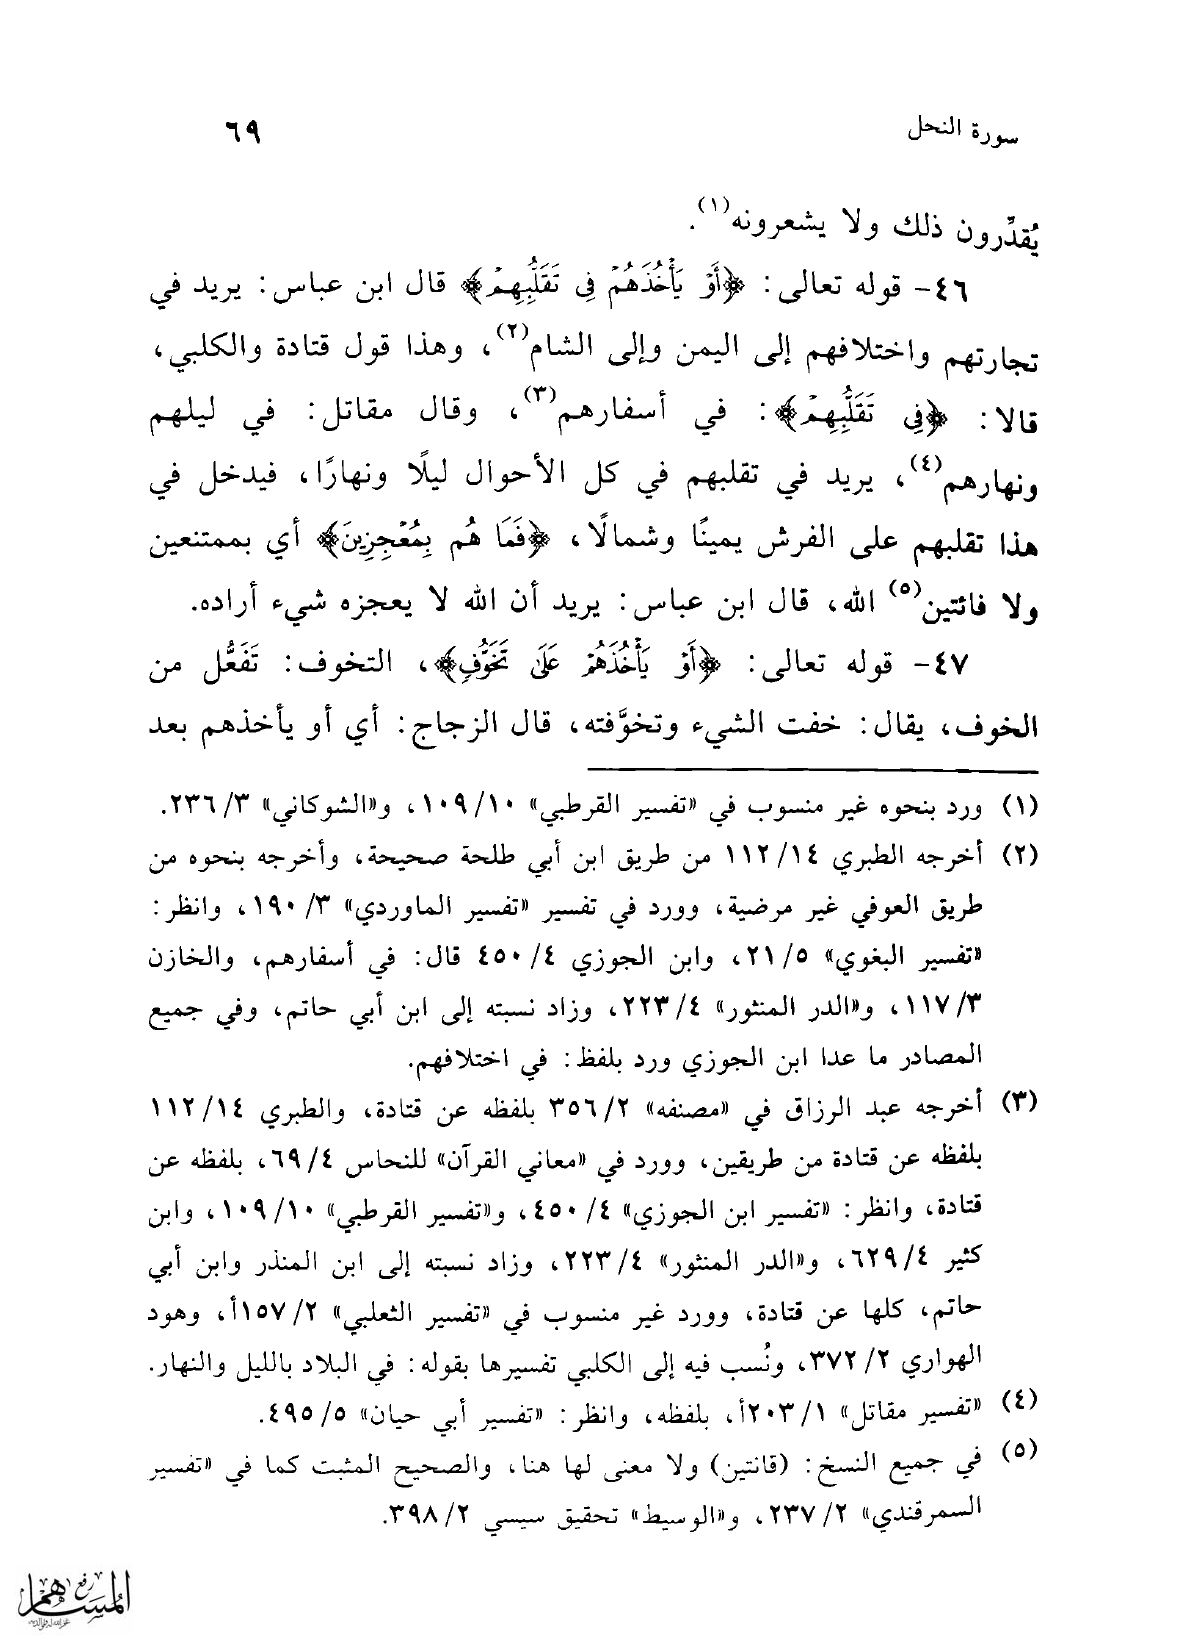 سورة النحل
٦٩
يُقدِّرون ذلك ولا يشعرونه(١).
٤٦- قوله تعالى: ﴿أَوۡ يَأۡخُذَهُمۡ فِى تَقَلُّبِهِمۡ﴾ قال ابن عباس: يريد في
تجارتهم واختلافهم إلى اليمن وإلى الشام(٢)، وهذا قول قتادة والكلبي،
قالا: ﴿فِى تَقَلُّبِهِمۡ﴾: في أسفارهم(٣)، وقال مقاتل: في ليلهم
ونهارهم(٤)، يريد في تقلبهم في كل الأحوال ليلًا ونهارًا، فيدخل في
هذا تقلبهم على الفرش يمينًا وشمالًا، ﴿فَمَا هُم بِمُعۡجِزِينَ﴾ أي بممتنعين
ولا فائتين(٥) الله، قال ابن عباس: يريد أن الله لا يعجزه شيء أراده.
٤٧- قوله تعالى: ﴿أَوۡ يَأۡخُذَهُمۡ عَلَىٰ تَخَوُّفٍ﴾، التخوف: تَفَعُّل من
الخوف، يقال: خفت الشيء وتخوَّفته، قال الزجاج: أي أو يأخذهم بعد
(١) ورد بنحوه غير منسوب في «تفسير القرطبي» ١٠/ ١٠٩، و«الشوكاني» ٣/ ٢٣٦.
(٢) أخرجه الطبري ١٤/ ١١٢ من طريق ابن أبي طلحة صحيحة، وأخرجه بنحوه من
طريق العوفي غير مرضية، وورد في تفسير «تفسير الماوردي» ٣/ ١٩٠، وانظر:
«تفسير البغوي» ٥/ ٢١، وابن الجوزي ٤/ ٤٥٠ قال: في أسفارهم، والخازن
٣/ ١١٧، و«الدر المنثور» ٤/ ٢٢٣، وزاد نسبته إلى ابن أبي حاتم، وفي جميع
المصادر ما عدا ابن الجوزي ورد بلفظ: في اختلافهم.
(٣) أخرجه عبد الرزاق في «مصنفه» ٢/ ٣٥٦ بلفظه عن قتادة، والطبري ١٤/ ١١٢
بلفظه عن قتادة من طريقين، وورد في «معاني القرآن» للنحاس ٤/ ٦٩، بلفظه عن
قتادة، وانظر: «تفسير ابن الجوزي» ٤/ ٤٥٠، و«تفسير القرطبي» ١٠/ ١٠٩، وابن
كثير ٤/ ٦٢٩، و«الدر المنثور» ٤/ ٢٢٣، وزاد نسبته إلى ابن المنذر وابن أبي
حاتم، كلها عن قتادة، وورد غير منسوب في «تفسير الثعلبي» ٢/ ١٥٧أ، وهود
الهواري ٢/ ٣٧٢، ونُسب فيه إلى الكلبي تفسيرها بقوله: في البلاد بالليل والنهار.
(٤) «تفسير مقاتل» ١/ ٢٠٣أ، بلفظه، وانظر: «تفسير أبي حيان» ٥/ ٤٩٥.
(٥) في جميع النسخ: (قانتين) ولا معنى لها هنا، والصحيح المثبت كما في «تفسير
السمرقندي» ٢/ ٢٣٧، و«الوسيط» تحقيق سيسي ٢/ ٣٩٨.